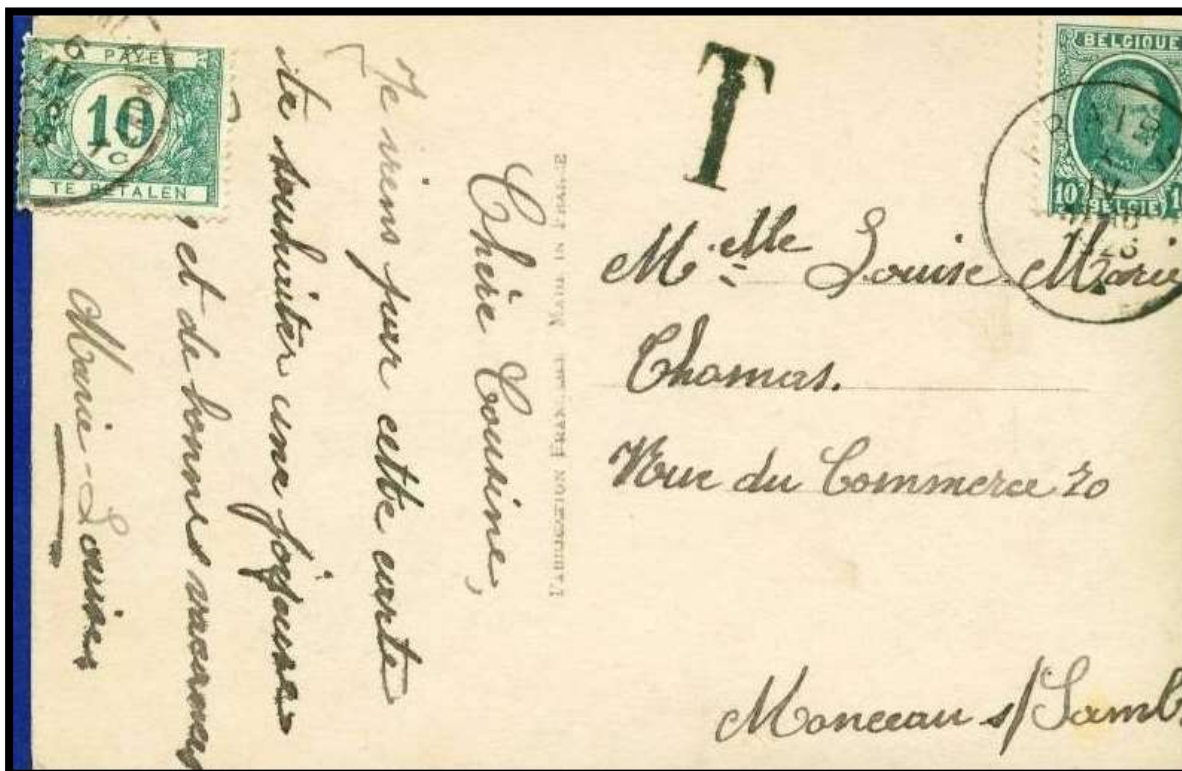 PAYER
10
c
TE BETALEN
Chère Cousine,
Je viens par cette carte
te souhaiter une joyeuse
, et de bonnes vacances
Marie-Louise
FABRICATION FRANÇAISE MADE IN FRANCE
T
BELGIQUE
10 BELGIË 1
IV
Melle Louise Marie
Thomas.
Rue du Commerce 20
Monceau s/Samb